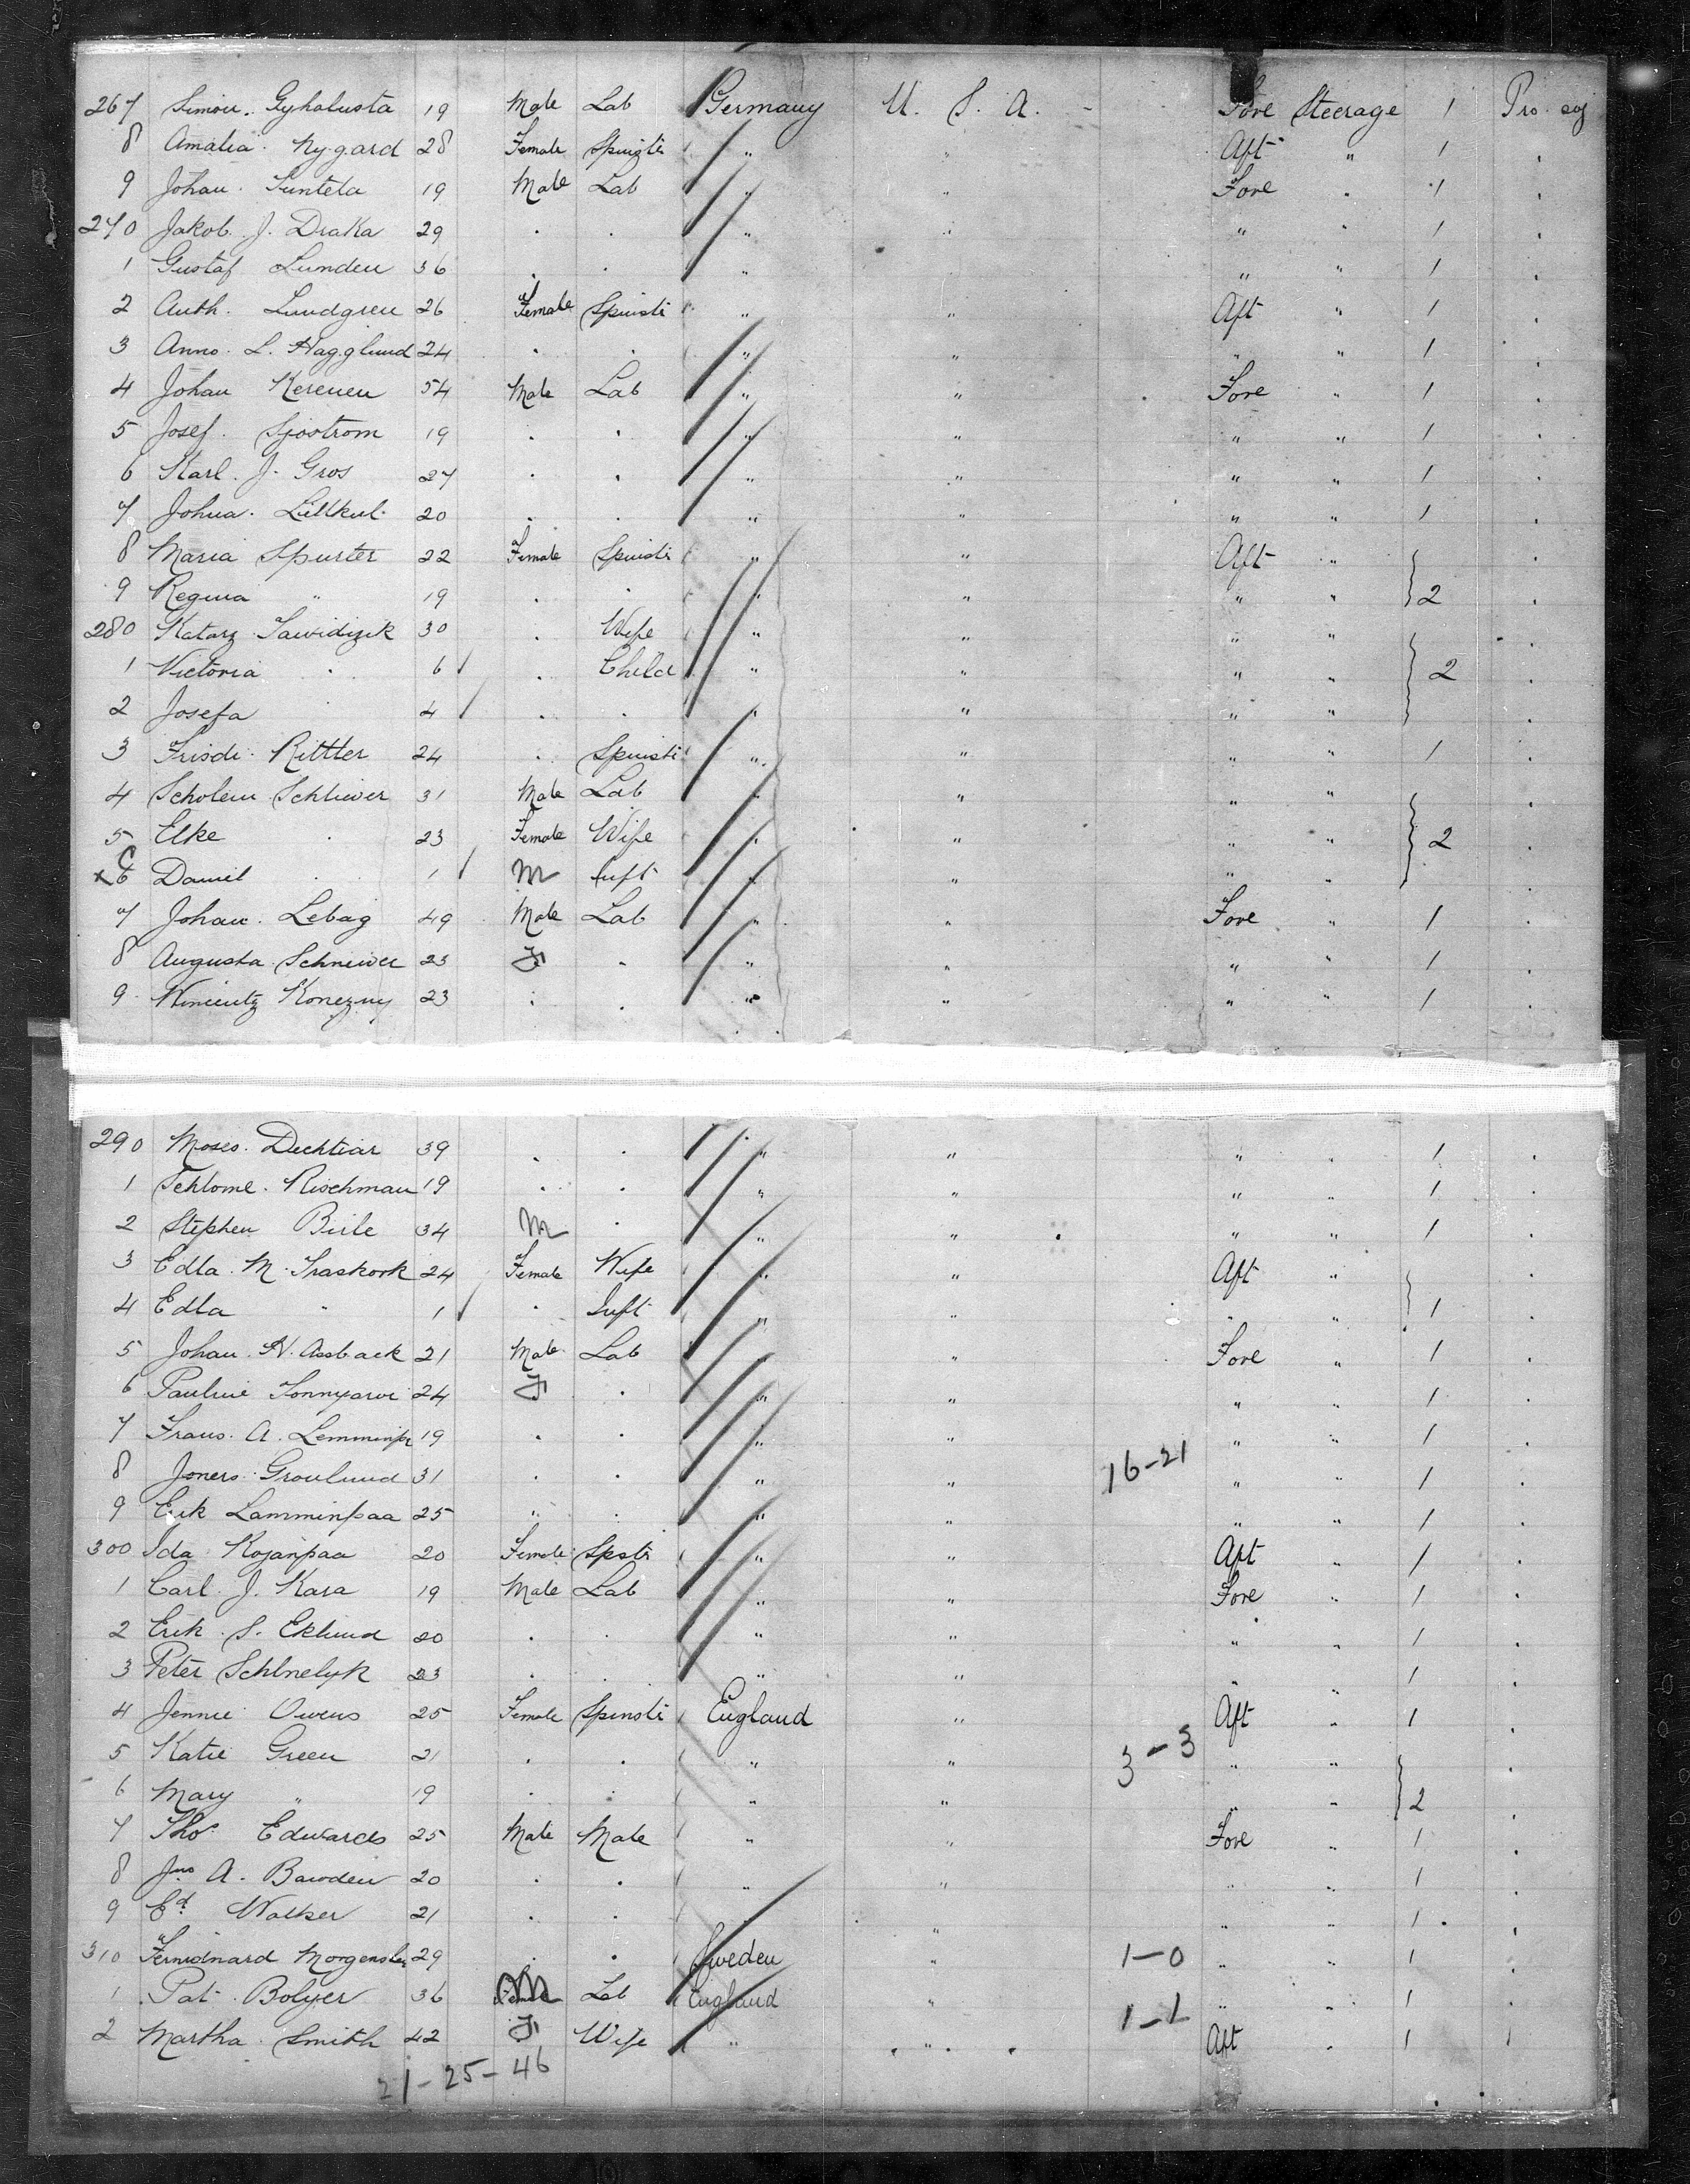 267 Simon. Gyhalusta 19 Male Lab Germany U. S. A. - Fore Steerage 1 Pro. soj
8 Amalia. Nygard 28 Female Spinstr " " Aft " 1 "
9 Johan. Suntela 19 Male Lab " " Fore " 1 "
270 Jakob. J. Draka 29 " " " " " " 1 "
1 Gustaf Lunden 36 " " " " " " 1 "
2 Anth. Lundgren 26 Female Spinstr " " Aft " 1 "
3 Anna. L. Hagglund 24 " " " " " " 1 "
4 Johan Kerenen 54 Male Lab " " Fore " 1 "
5 Josef. Sjostrom 19 " " " " " " 1 "
6 Karl. J. Gros 27 " " " " " " 1 "
7 Johua. Lillkul. 20 " " " " " " 1 "
8 Maria Spurter 22 Female Spinstr " " Aft " "
9 Regina " 19 " " " " " " 2 "
280 Katarz Sawidzik 30 " Wife " " " " "
1 Victoria " 6 " Child " " " " 2 "
2 Josefa " 4 " " " " " " "
3 Frisdi. Rittler 24 " Spinstr " " " " 1 "
4 Scholem Schliwer 31 Male Lab " " " " "
5 Elke " 23 Female Wife " " " " 2 "
x6 C Daniel " 1 M Inft " " " " "
7 Johan. Lebag 49 Male Lab " " Fore " 1 "
8 Augusta. Schneiwer 23 F " " " " " 1 "
9 Wincentz Konezny 23 " " " " " " 1 "
290 Moses. Dechtiar 39 " " " " " " 1 "
1 Schlome. Rischman 19 " " " " " " 1 "
2 Stephen Birle 34 M " " " " " 1 "
3 Edla. M. Traskork 24 Female Wife " " Aft " "
4 Edla " 1 " Inft " " " " 1 "
5 Johan. H. Assback 21 Male Lab " " Fore " 1 "
6 Pauline Sonnyarvi 24 F " " " " " 1 "
7 Frans. A. 19 " " " " " " 1 "
8 Joners. Gronlund 31 " " " " 16-21 " " 1 "
9 Erik Lamminpaa 25 " " " " " " 1 "
300 Ida Kojanpaa 20 Female Spstr " " Aft " 1 "
1 Carl. J. Kara 19 Male Lab " " Fore " 1 "
2 Erik. S. Eklund 20 " " " " " " 1 "
3 Peter Schlnelyk 23 " " " " " " 1 "
4 Jennie Owens 25 Female Spinstr England " Aft " 1 "
5 Katie Green 21 " " " " 3-3 " " "
6 Mary " 19 " " " " " " 2 "
7 Thos Edwards 25 Male Male " " Fore " 1 "
8 Jno A. Bawden 20 " " " " " " 1 "
9 Ed. Walker 21 " " " " " " 1 "
310 Fernidnard 29 " " Sweden " 1-0 " " 1 "
1 Pat. Bolyer 36 M Lab England " 1-1 " " 1 "
2 Martha. Smith 42 F Wife " " Aft " 1 "
21-25-46